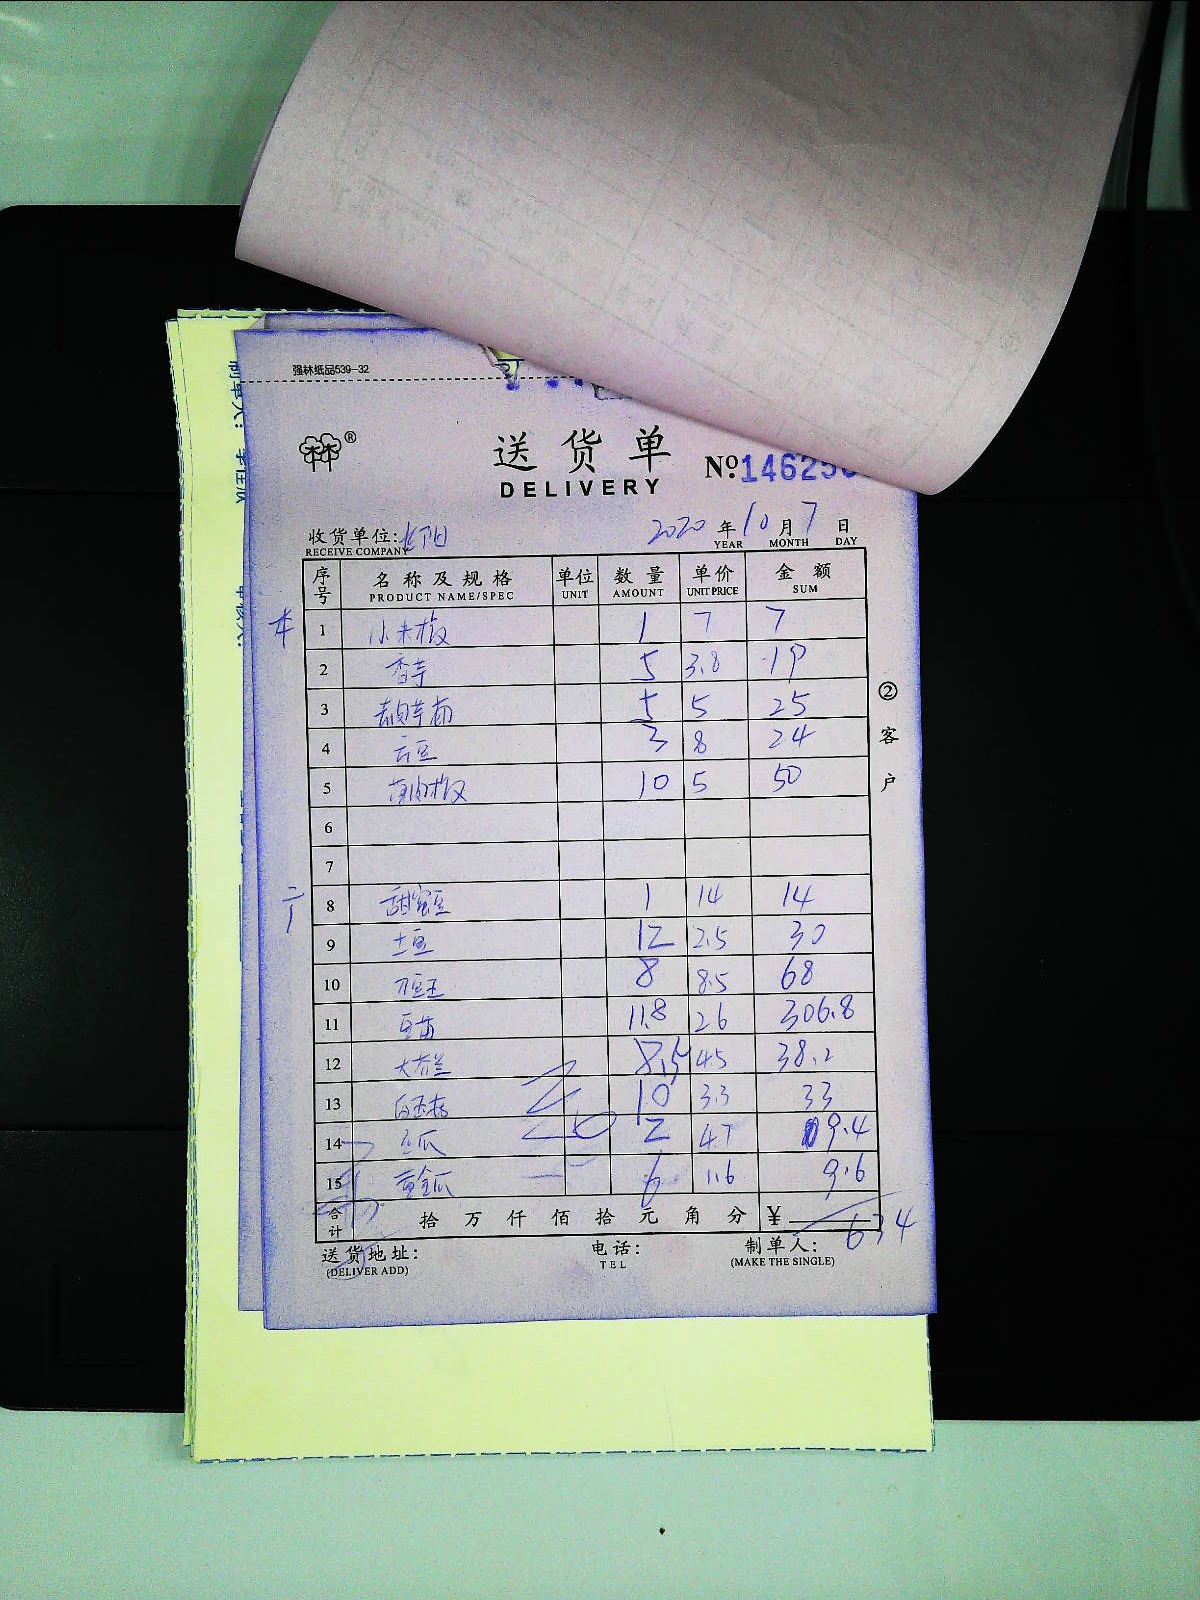 强林纸品539-32
送货单
DELIVERY
№146250
收货单位:
RECEIVE COMPANY
2020年10月7日
YEAR MONTH DAY
序号 名称及规格 单位 数量 单价 金额
PRODUCT NAME/SPEC UNIT AMOUNT UNIT PRICE SUM
本 1 小米椒 1 7 7
2 香芋 5 3.8 19
3 5 5 25
4 云豆 3 8 24
5 10 5 50
6
7
8 甜蜜豆 1 14 14
9 土豆 12 2.5 30
10 8 8.5 68
11 豆苗 11.8 26 306.8
12 大芥兰 8.5 4.5 38.2
13 白玉菇 10 3.3 33
14 2 4.7 9.4
15 黄金瓜 6 1.6 9.6
合计 拾万仟佰拾元角分 ¥ 634
送货地址: 电话: 制单人:
(DELIVER ADD) TEL (MAKE THE SINGLE)
②客户